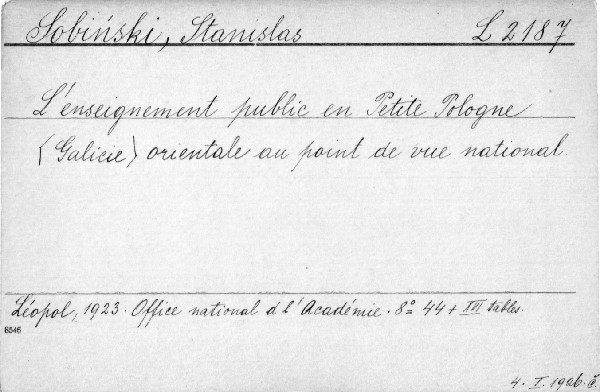 Sobiński, Stanislas L 2187
L'enseignement public en Petite Pologne
(Galicie) orientale au point de vue national.
Léopol, 1923. Office national d l'Académie. 8° 44 + XII tables.
8546
4. I. 1926. č